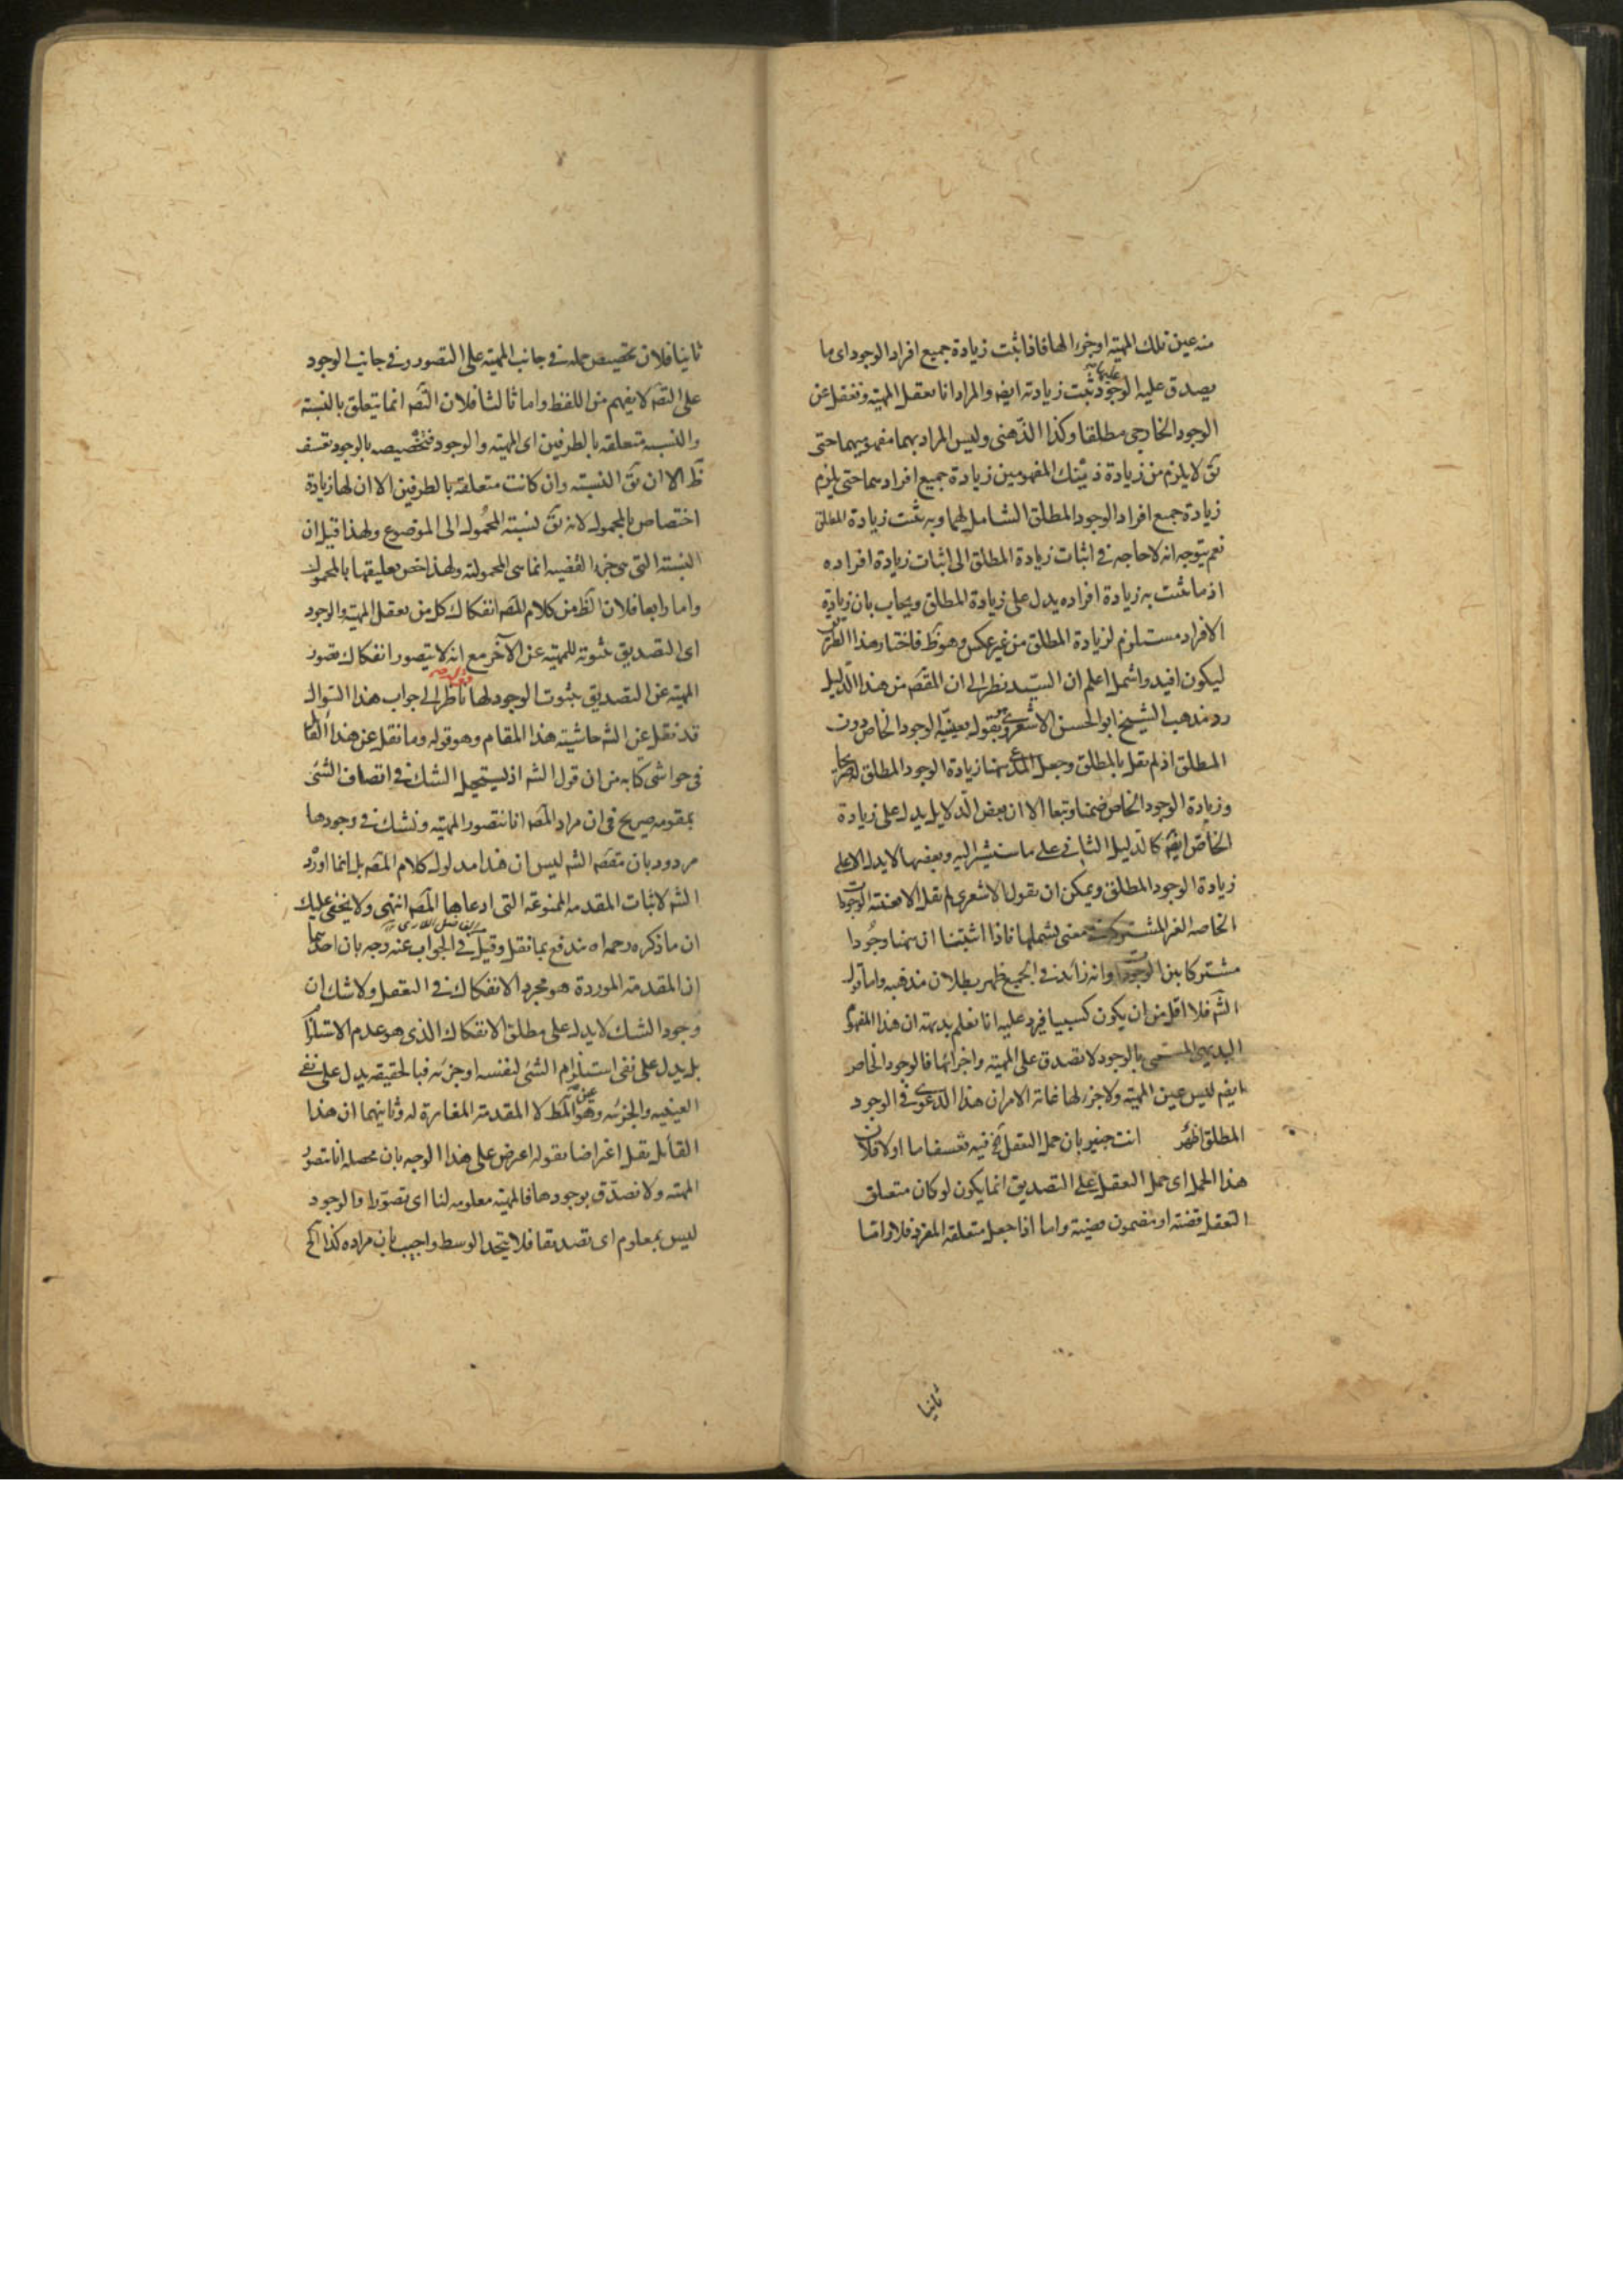 منه عين تلك المهية او جزء الها فاذا ثبت زيادة جميع افراد الوجود اى ما
يصدق عليه الوجود عليها ثبت زيادته ايضه والمراد انا نعقل المهية ونغفل عن
الوجود الخارجى مطلقا وكذا الذهنى وليس المراد بهما مفهوميهما حتى
يق لا يلزم من زيادة ذينك المفهومين زيادة جميع افرادهما حتى يلزم
زيادة جميع افراد الوجود المطلق الشامل لهما وبه يثبت زيادة المطلق
نعم يتوجه انه لا حاجه فى اثبات زيادة المطلق الى اثبات زيادة افراده
اذ ما ثبت به زيادة افراده يدل على زيادة المطلق ويجاب بان زيادة
الافراد مستلزم لزيادة المطلق من غير عكس وهو ظ فاختار هذا الطريق
ليكون افيد واشمل اعلم ان السيد نظر الى ان المقصه من هذا الدليل
رد مذهب الشيخ ابو الحسن الاشعرى وهو يقوله بعينية الوجود الخاص دون
المطلق اذ لم يقل بالمطلق وجعل المدعى ههنا زيادة الوجود المطلق صريحا
وزيادة الوجود الخاص ضمنا وتبعا الا ان بعض الدلايل يدل على زيادة
الخاص ايضه كالدليل الثانى على ما سنشير اليه وبعضها لا يدل الا على
زيادة الوجود المطلق ويمكن ان يقول الاشعرى لم يقل الا بعينية الوجودات
الخاصه الغير المشتركة معنى يشملها فاذا اثبتنا ان ههنا وجودا
مشتركا بين الوجودات وانه زائد فى الجميع ظهر بطلان مذهبه واما قوله
الشه فلا اقل من ان يكون كسبيا فيرد عليه انا نعلم بديهة ان هذا المفهوم
البديهى المسمى بالوجود لا تصدق على المهية واجزائها فالوجود الخاص
ايضه ليس عين المهية ولا جزء لها غاية الامر ان هذا الدعوى فى الوجود
المطلق اظهر انت خبير بان حمل التعقل الخ فيه تعسف اما اولا فلان
هذا الحمل اى حمل التعقل على التصديق انما يكون لو كان متعلق
التعقل قضية او مضمون قضية واما اذا جعل متعلقه المفرد فلا واما
ثانيا
ثانيا فلان تخصيص حمله فى جانب المهية على التصور وفى جانب الوجود
على التصه لا يفهم من اللفظ واما ثالثا فلان التصه انما يتعلق بالنسبة
والنسبه متعلقه بالطرفين اى المهية والوجود فتخصيصه بالوجود تعسف
ظ الا ان يق النسبة وان كانت متعلقة بالطرفين الا ان لها زيادة
اختصاص بالمحمول لانه يق نسبة المحمول الى الموضوع ولهذا قيل ان
النسبة التى هى جزء القضيه انما هى المحمولية ولهذا خص تعليقها بالمحمول
واما رابعا فلان الظ من كلام المصه انفكاك كل من تعقل المهية والوجود
اى التصديق بثبوته للمهية عن الآخر مع انه لا يتصور انفكاك تصور
المهية عن التصديق بثبوت الوجود لها ناظر الى جواب هذا السوال
قد نقل عن الشه حاشيته هذا المقام وهو قوله وما نقل عن هذا القائل
فى حواشى كتابه من ان قول الشه اذ يستحيل الشك فى اتصاف الشئى
بمقومه صريح فى ان مراد المصه انا نتصور المهية ونشك فى وجودها
مردود بان مقصه الشه ليس ان هذا مدلول كلام المصه بل انما اورد
الشه لاثبات المقدمه الممنوعة التى ادعاها المصه انتهى ولا يخفى عليك
ان ما ذكره رحمه اه مندفع بما نقل وقيل فى الجواب عنه وجهان احدهما
ان المقدمة الموردة هو مجرد الانفكاك فى التعقل ولا شك ان
وجود الشك لا يدل على مطلق الانفكاك الذى هو عدم الاستلزام
بل يدل على نفى استلزام الشئى لنفسه او جزئه فبالحقيقه يدل على نفى
العينيه والجزئيه وهو عين المط لا المقدمة المغايرة له وثانيهما ان هذا
القائل نقل اعتراضا بقوله اعترض على هذا الوجه بان محصله انا نتصور
المهية ولا نصدق بوجودها فالمهية معلومه لنا اى تصورا والوجود
ليس بمعلوم اى تصديقا فلا يتحد الوسط واجيب بان مراده كذا الخ